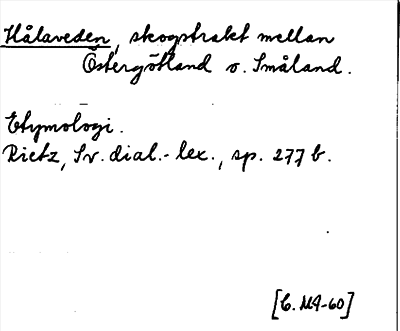 Hålaveden, skogstrakt mellan
Östergötland o. Småland.
Etymologi.
Rietz, Sv. dial.-lex., sp. 277 b.